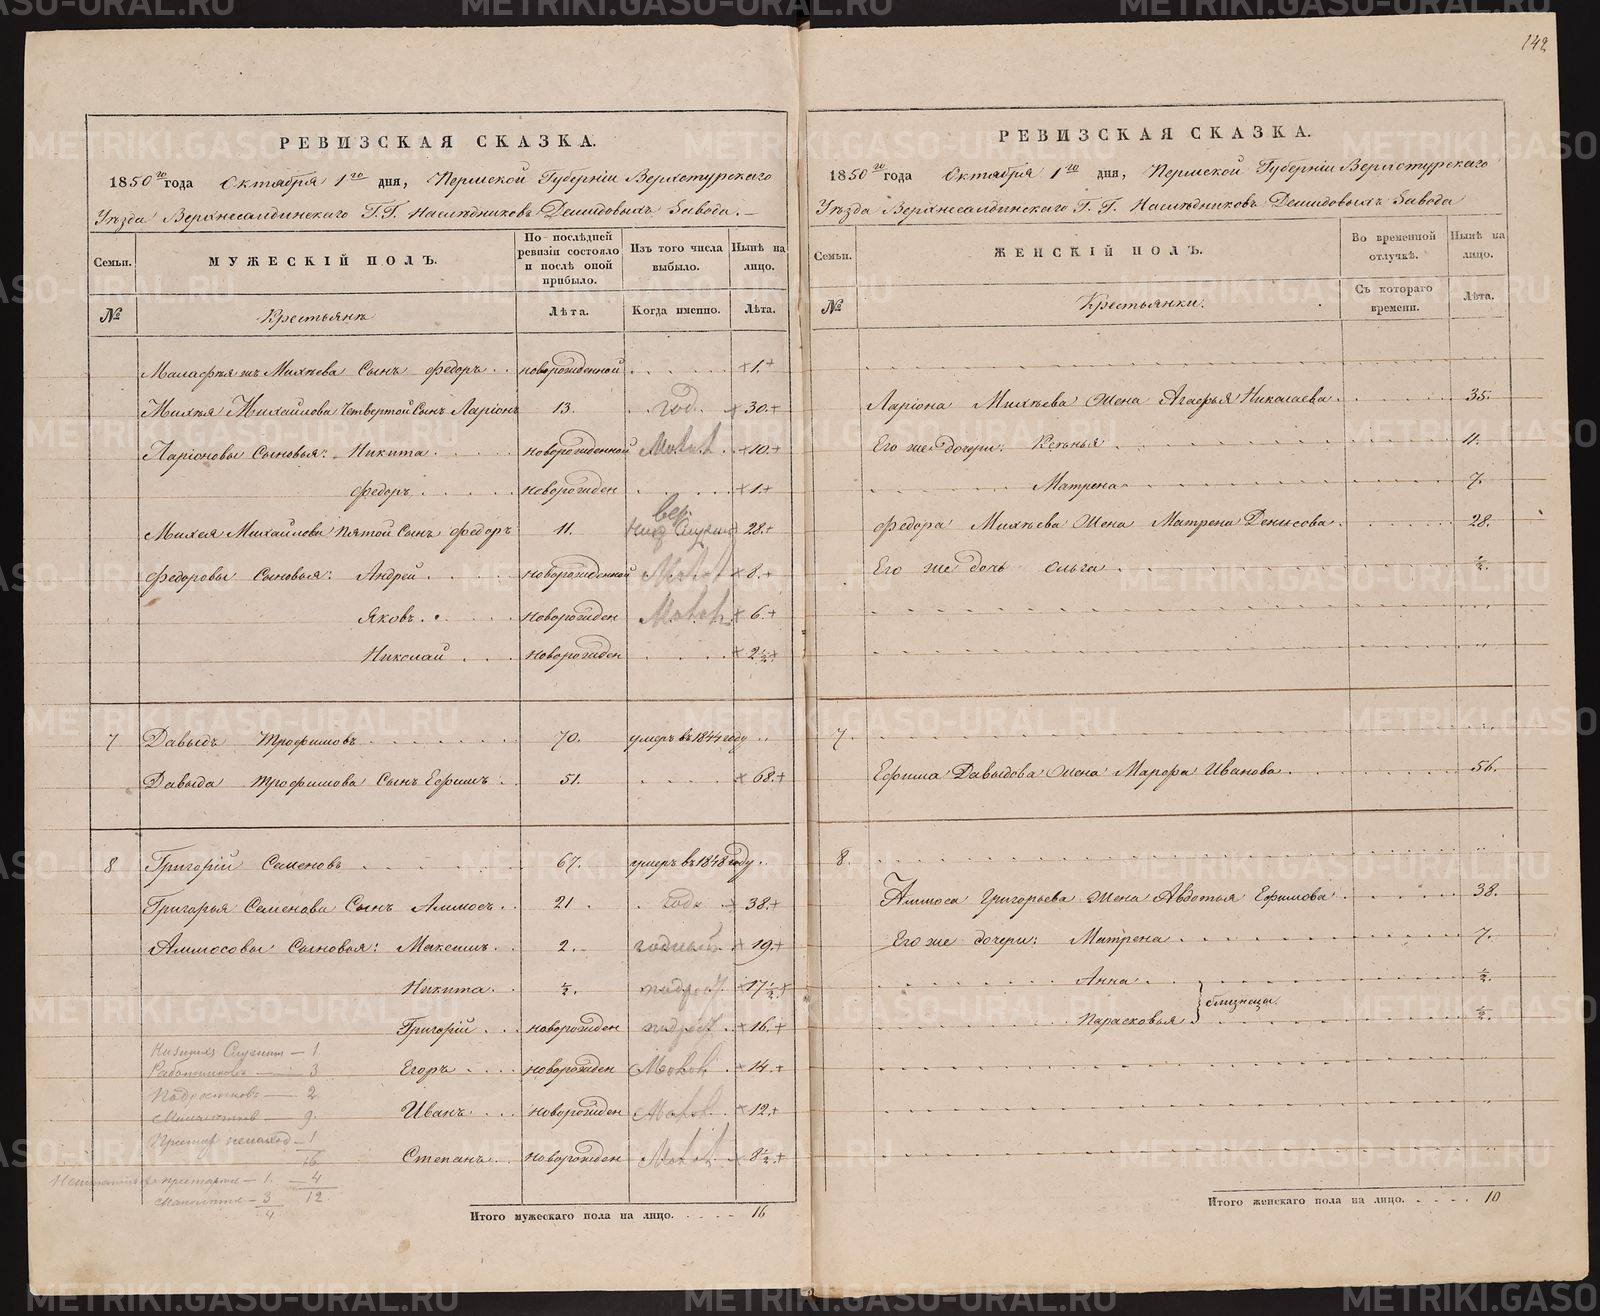 142
РЕВИЗСКАЯ СКАЗКА.
1850го года Октября 1го дня, Пермской Губернiи Верхотурскаго
Уѣзда Верхнесалдинскаго Г.Г. Наслѣдниковъ Демидовыхъ Завода.
Семьи. МУЖЕСКIЙ ПОЛЪ. По послѣдней ревизiи состояло и послѣ оной прибыло. Изъ того числа выбыло. Нынѣ на лицо.
№ Крестьянъ Лѣта. Когда именно. Лѣта.
Малафея Михѣева Сынъ Федоръ новорожденной 1.
Михѣя Михайлова Четвертой Сынъ Ларiонъ 13. год. 30.
Ларiоновы Сыновья: Никита новорожденной Малол. 10.
Федоръ новорожден 1.
Михея Михайлова пятой Сынъ Федоръ 11. вер. 28.
Федоровы Сыновья: Андрей новорожденной Малол 8.
Яковъ новорожден Малол 6.
Николай новорожден 2 1/2.
7 Давыдъ Трофимовъ 70. умеръ въ 1844 году
Давыда Трофимова Сынъ Ефимъ 51. 68.
8 Григорiй Семеновъ 67. умеръ въ 1848 году.
Григорья Семенова Сынъ Аммосъ 21. годн 38.
Аммосовы Сыновья: Максимъ 2. годный 19.
Никита 1/2. подрост 17 1/2.
Григорiй новорожден подрост 16.
Егоръ новорожден Малол 14.
Иванъ новорожден Малол 12.
Степанъ новорожден Малол 8 1/2.
Низших Служит — 1
Работников — 3
Подростков — 2
Малолѣтков — 9
Престар — 1
16
престар — 1. — 4
малолѣтн — 3 12
4
Итого мужескаго пола на лицо. 16
РЕВИЗСКАЯ СКАЗКА.
1850го года Октября 1го дня, Пермской Губернiи Верхотурскаго
Уѣзда Верхнесалдинскаго Г. Г. Наслѣдниковъ Демидовыхъ Завода
Семьи. ЖЕНСКIЙ ПОЛЪ. Во временной отлучкѣ. Нынѣ на лицо.
№ Крестьянки. Съ котораго времени. Лѣта.
Ларiона Михѣева Жена Агафья Николаева 35.
Его же дочери: Ксенья 11.
Матрена 7.
Федора Михѣева Жена Матрена Денисова 28.
Его же дочь Ольга 1/2.
7
Ефима Давыдова Жена Марфа Иванова 56.
8.
Аммоса Григорьева Жена Авдотья Ефимова 38.
Его же дочери: Матрена 7.
Анна 1/2.
близнецы.
Парасковья 1/2.
Итого женскаго пола на лицо. 10
METRIKI.GASO-URAL.RU